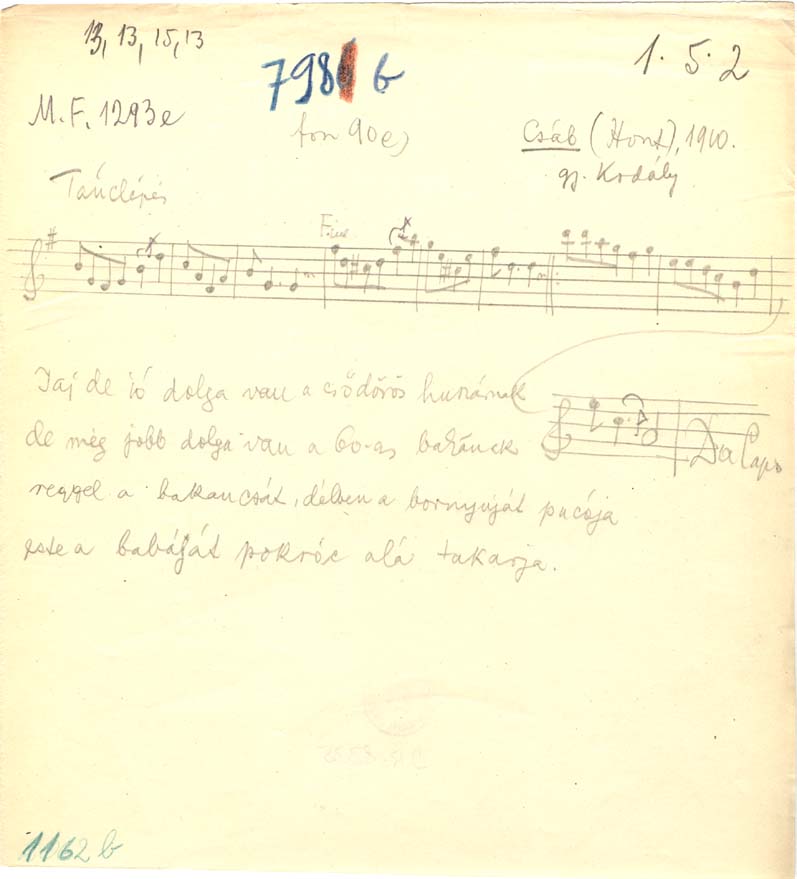 13, 13, 15, 13
798 b
1. 5. 2
M.F. 1293e
fon 90e)
Csáb (Hont), 1910.
gj. Kodály
Tánclépés
Fine
Jaj de jó dolga van a csődőrös huszárnak
de még jobb dolga van a 60-as bakának
Da Capo
reggel a bakancsát, délben a bornyúját pucója
este a babáját pokróc alá takarja.
1162 b